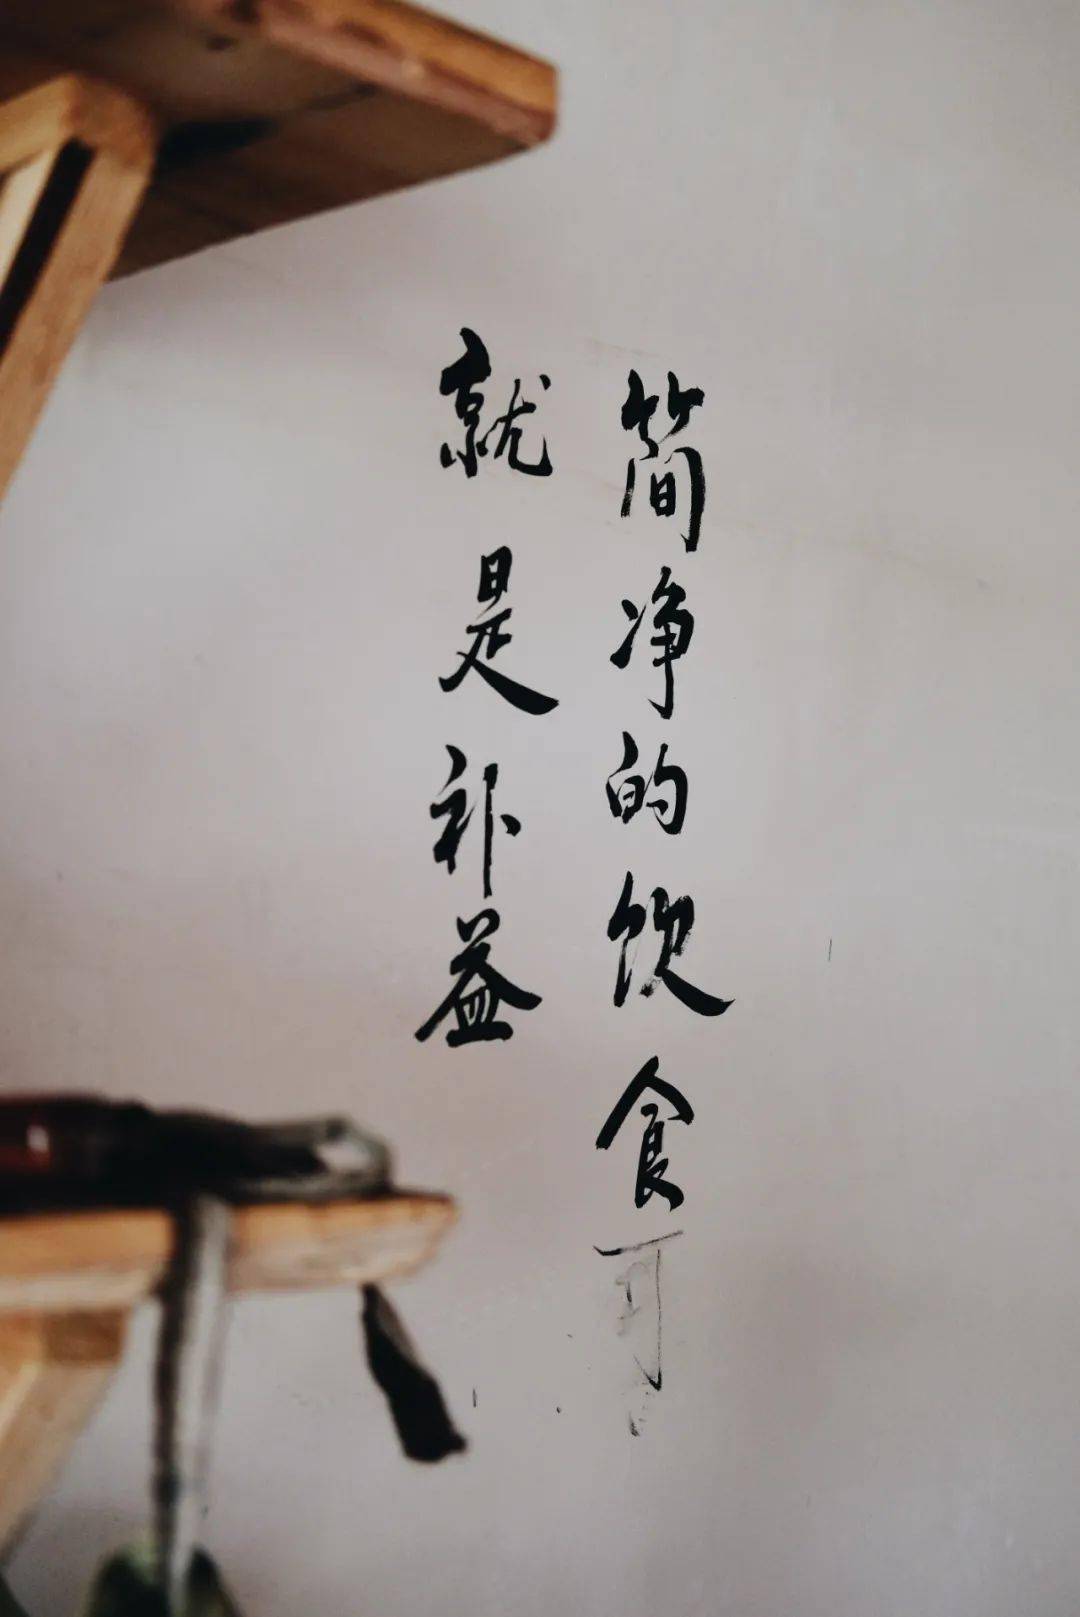 简净的饮食可
就是补益